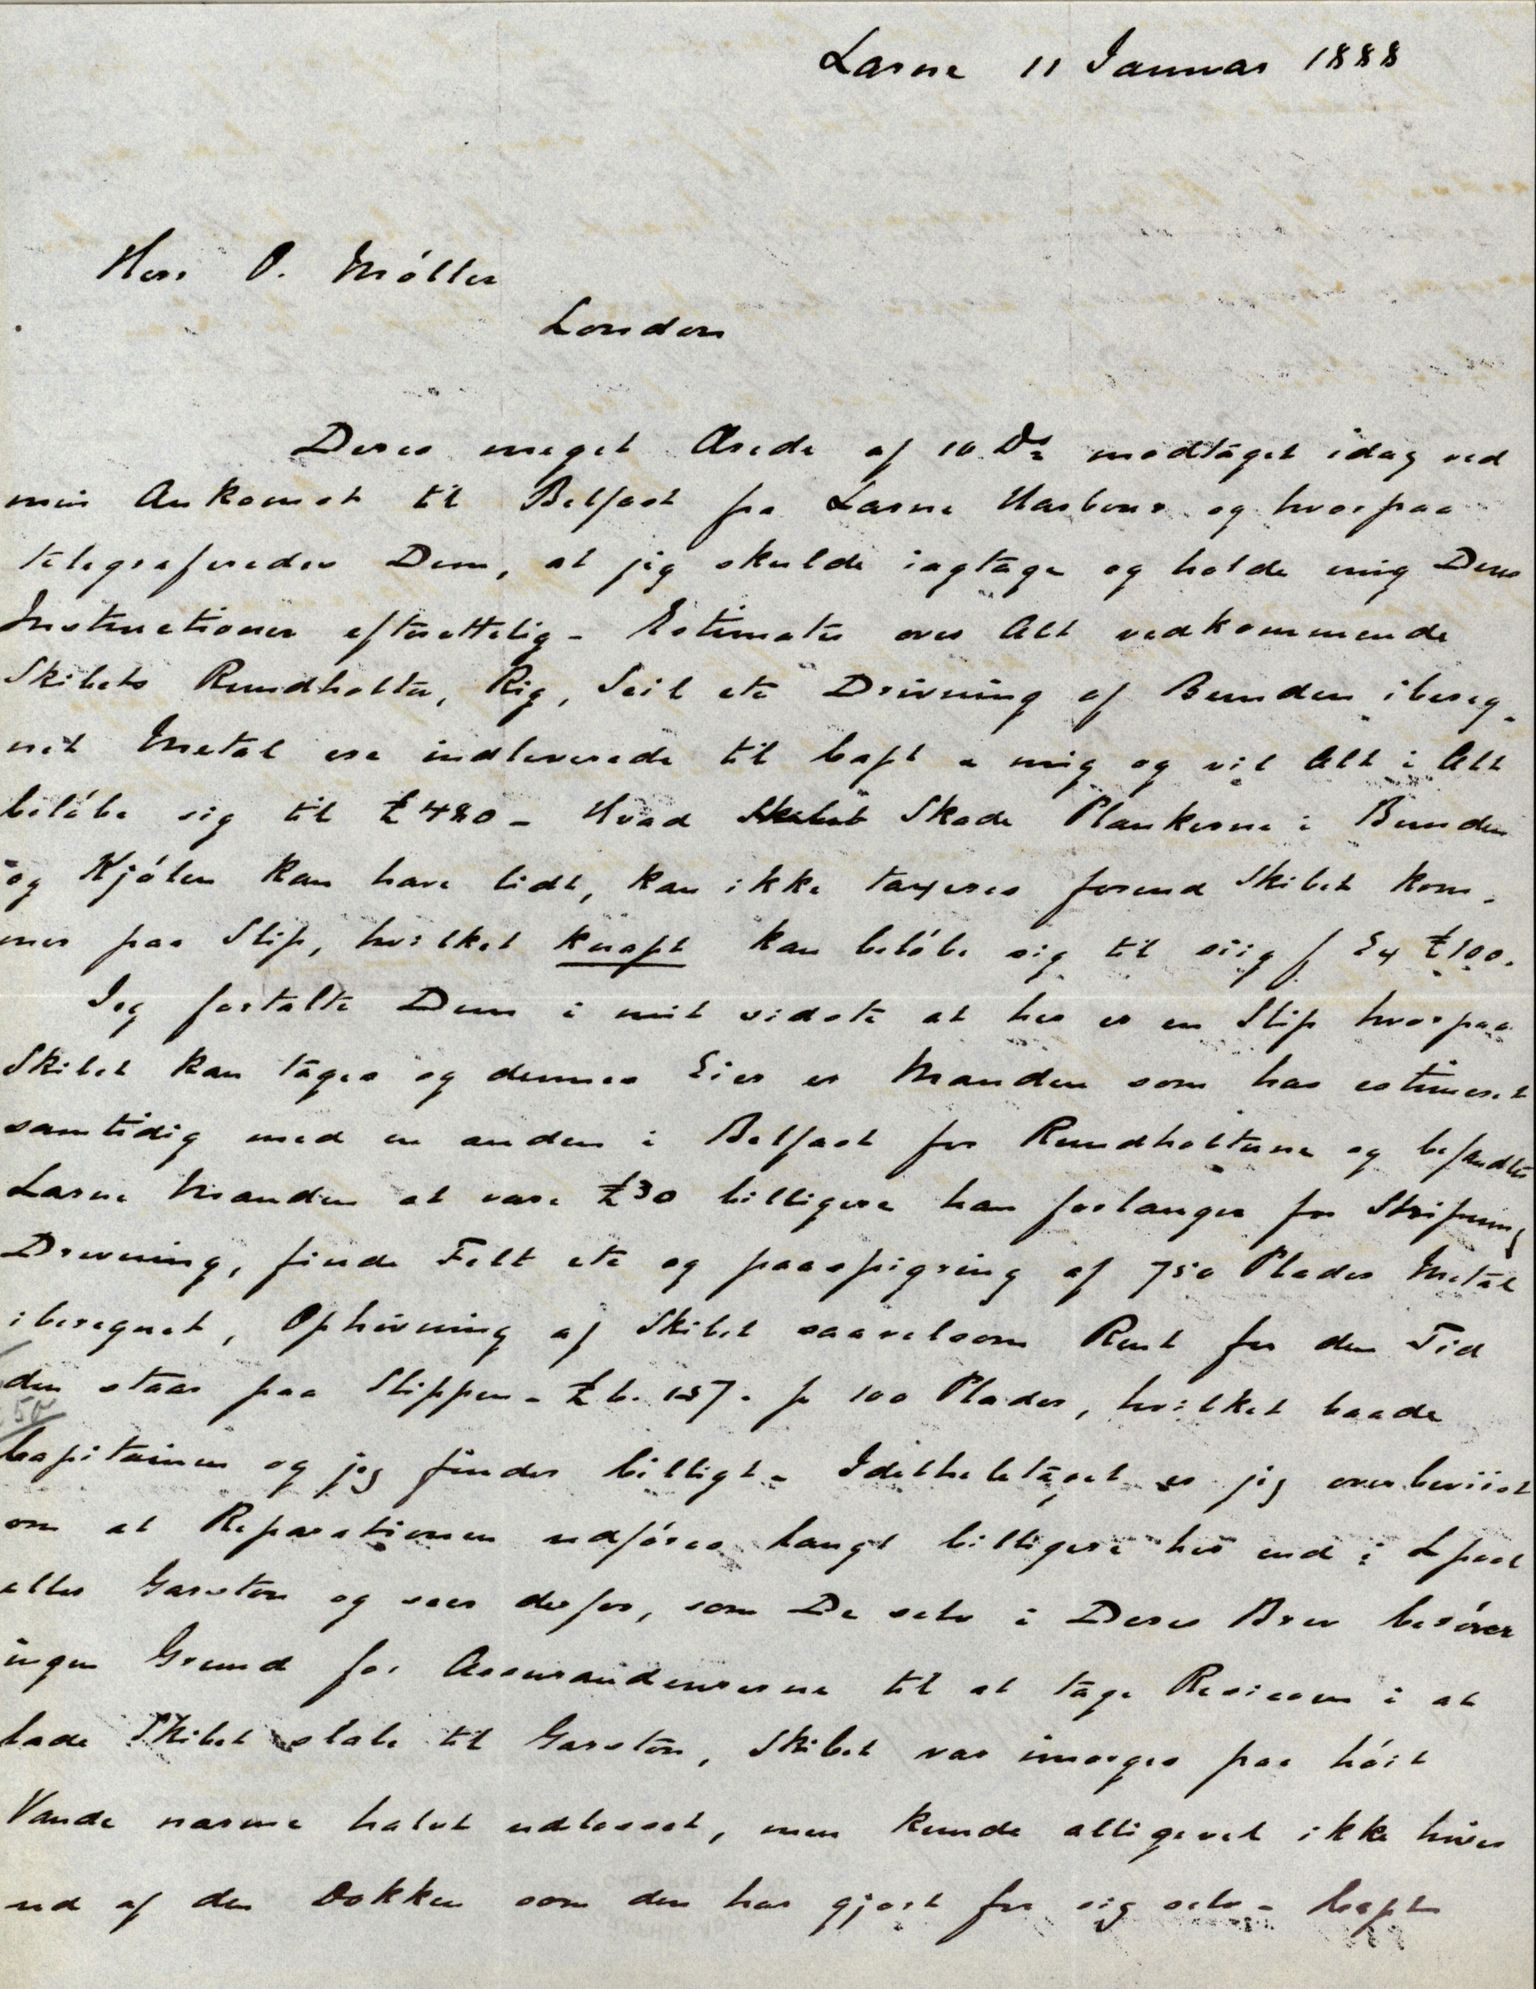 Larne 11 Januar 1888
Herr O. Möller
London
Deres meget Ærede af 10 Ds modtaget idag ved
min Ankomst til Belfast fra Larne Harbour og hvorpaa
telegraferedes Dem, at jeg skulde iagtage og holde mig Deres
Instructioner efterrettelig – Estimater over Alt vedkommende
Skibets Rundholter, Rig, Seil etc Drivning af Bunden ibereg-
net Metal ere indleverede til Capt & mig og vil Alt i Alt
belöbe sig til £480 – Hvad Skibet Skade Plankerne i Bunden
og Kjölen kan have lidt, kan ikke taxeres förend Skibet kom-
mer paa Slip, hvilket knapt kan belöbe sig til siig f Ex £100.
Jeg fortalte Dem i mit sidste at her er en Slip hvorpaa
Skibet kan tages og dennes Eier er Manden som har estimeret
samtidig med en anden i Belfast for Rundholterne og befandtes
Larne Manden at være £30 billigere han forlanger for Stripning
Drevning, finde Felt etc og paaspigring af 750 Plader Metal
iberegnet, Ophivning af Skibet saavelsom Rent for den Tid
den staar paa Slippen – £6.15/- pr 100 Plader, hvilket baade
50
Capitainen og jeg finder billigt – Idetheletaget er jeg overbeviist
om at Reparationen udföres langt billigere her end i Lpool
eller Garston og seer derfor, som De selv i Deres Brev berörer
ingen Grund for Assurandeurerne til at tage Risicoen i at
lade Skibet slæbe til Garston, Skibet var imorges paa höit
Vande nærme halvt udlosset, men kunde alligevel ikke hives
ud af den Dokken som den har gjort for sig selv – Capt